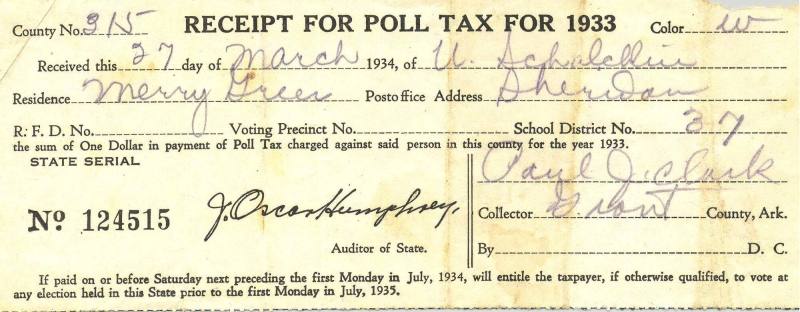 County No. 315 RECEIPT FOR POLL TAX FOR 1933 Color W
Received this 27 day of March 1934, of U. Schalchlin
Residence Merry Green Postoffice Address Sheridan
R. F. D. No. Voting Precinct No. School District No. 37
the sum of One Dollar in payment of Poll Tax charged against said person in this county for the year 1933.
STATE SERIAL
Paul J. Clark
No 124515 J. Oscar Humphrey, Collector Grant County, Ark.
Auditor of State. By D. C.
If paid on or before Saturday next preceding the first Monday in July, 1934, will entitle the taxpayer, if otherwise qualified, to vote at
any election held in this State prior to the first Monday in July, 1935.